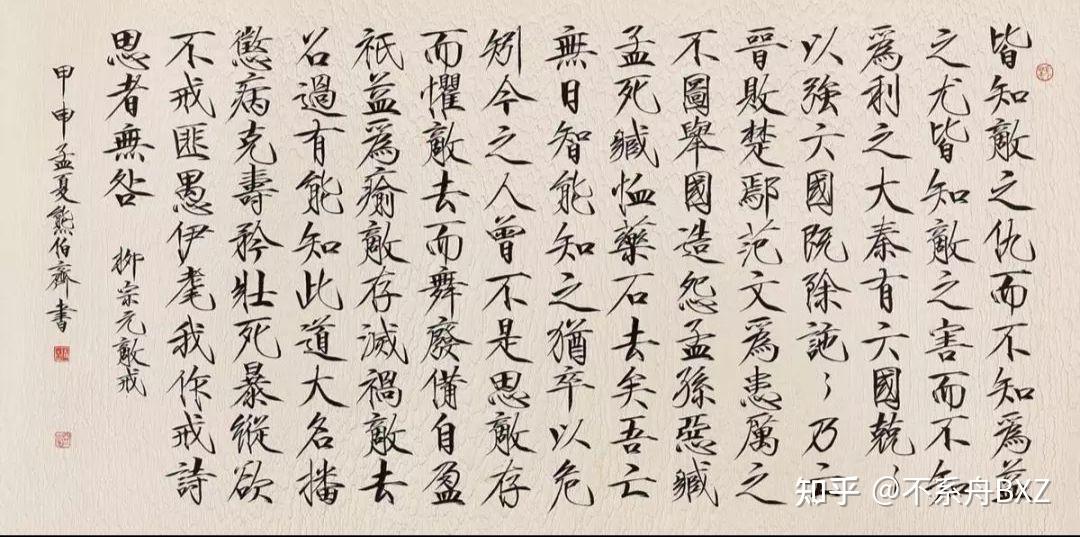 皆知敵之仇而不知爲益
之尤皆知敵之害而不知
爲利之大秦有六國兢〻
以強六國既除訑〻乃亡
晉敗楚鄢范文爲患厲之
不圖舉國造怨孟孫惡臧
孟死臧恤藥石去矣吾亡
無日智能知之猶卒以危
矧今之人曾不是思敵存
而懼敵去而舞廢備自盈
祇益爲瘉敵存滅禍敵去
召過有能知此道大名播
懲病克壽矜壯死暴縱欲
不戒匪愚伊耄我作戒詩
思者無咎
柳宗元敵戒
甲申孟夏熊伯齊書
知乎 @不系舟BXZ